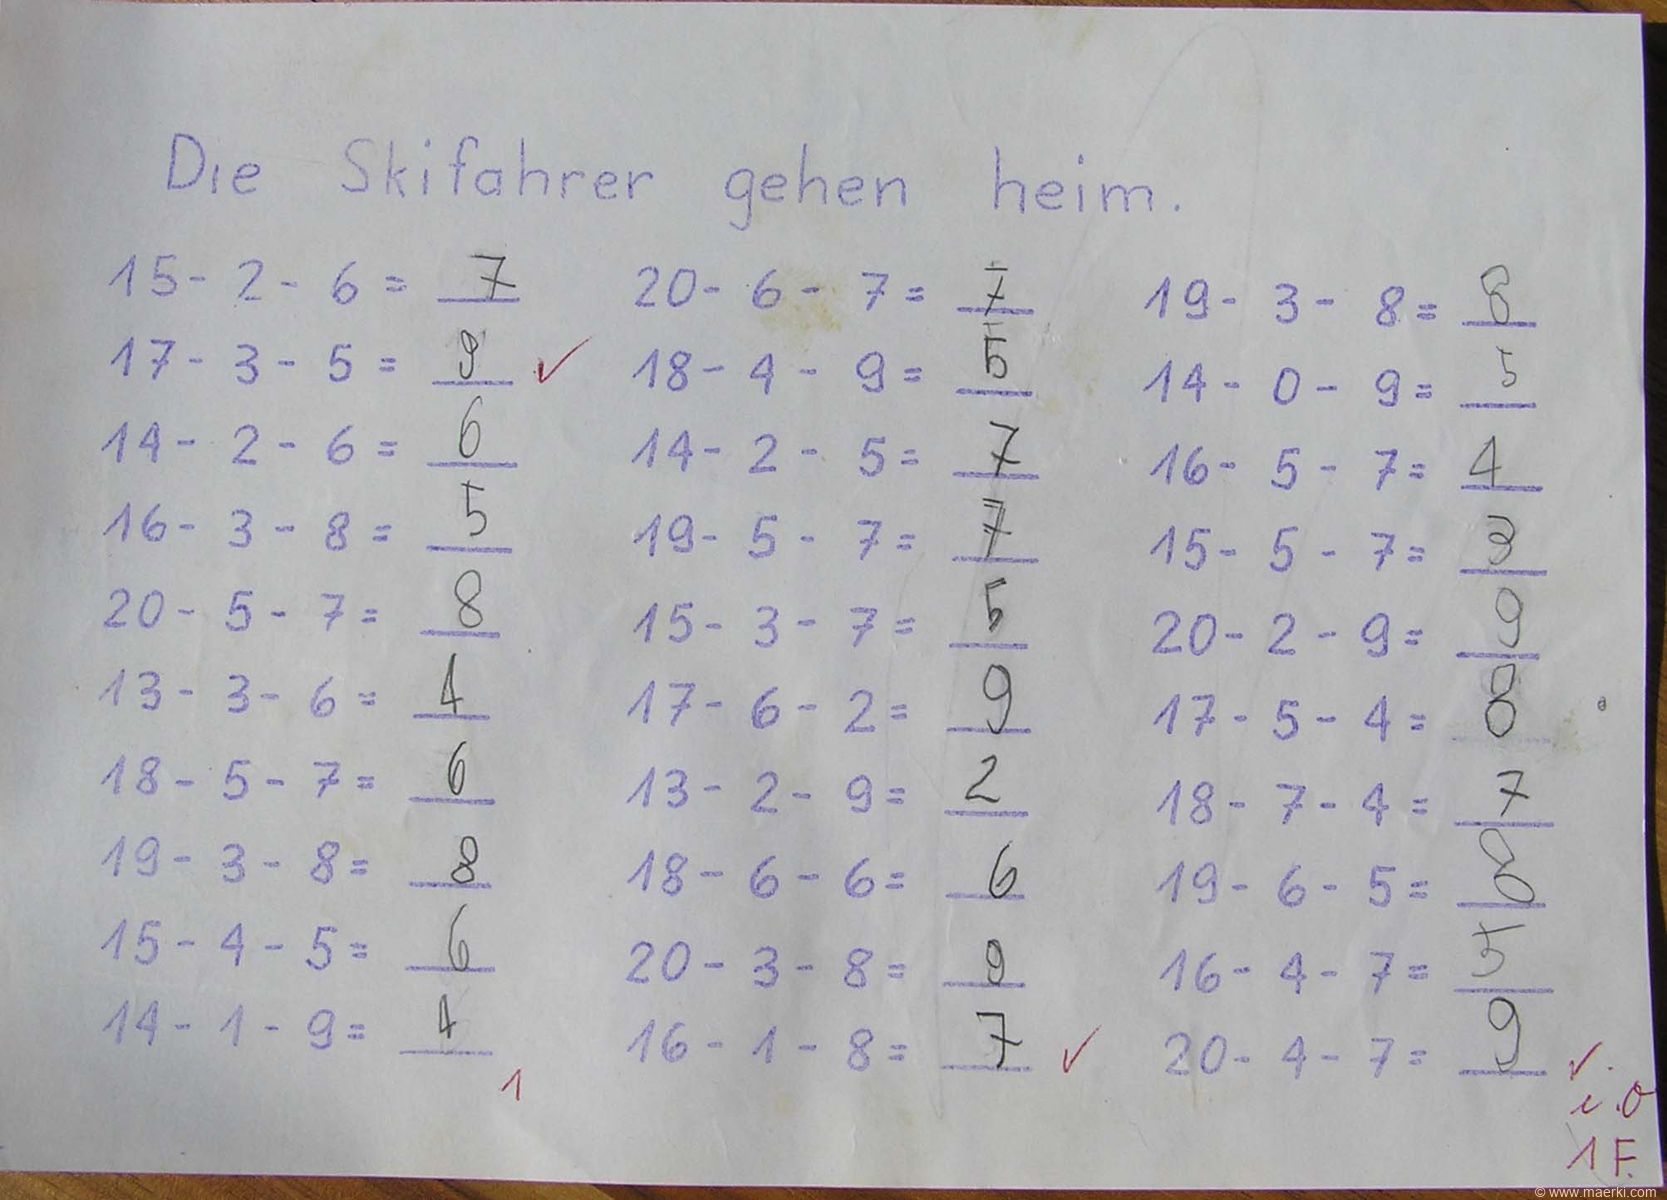 Die Skifahrer gehen heim.
15 - 2 - 6 = 7
17 - 3 - 5 = 9 ✓
14 - 2 - 6 = 6
16 - 3 - 8 = 5
20 - 5 - 7 = 8
13 - 3 - 6 = 4
18 - 5 - 7 = 6
19 - 3 - 8 = 8
15 - 4 - 5 = 6
14 - 1 - 9 = 4
1
20 - 6 - 7 = 7
18 - 4 - 9 = 5
14 - 2 - 5 = 7
19 - 5 - 7 = 7
15 - 3 - 7 = 5
17 - 6 - 2 = 9
13 - 2 - 9 = 2
18 - 6 - 6 = 6
20 - 3 - 8 = 9
16 - 1 - 8 = 7 ✓
19 - 3 - 8 = 8
14 - 0 - 9 = 5
16 - 5 - 7 = 4
15 - 5 - 7 = 3
20 - 2 - 9 = 9
17 - 5 - 4 = 8
18 - 7 - 4 = 7
19 - 6 - 5 = 8
16 - 4 - 7 = 5
20 - 4 - 7 = 9 ✓.
i.O
1 F.
© www.maerki.com